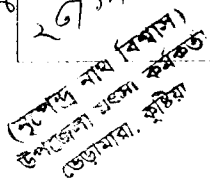 ২৩
(নৃপেন্দ্র নাথ বিশ্বাস)
উপজেলা মৎস্য কর্মকর্তা
ভেড়ামারা, কুষ্টিয়া